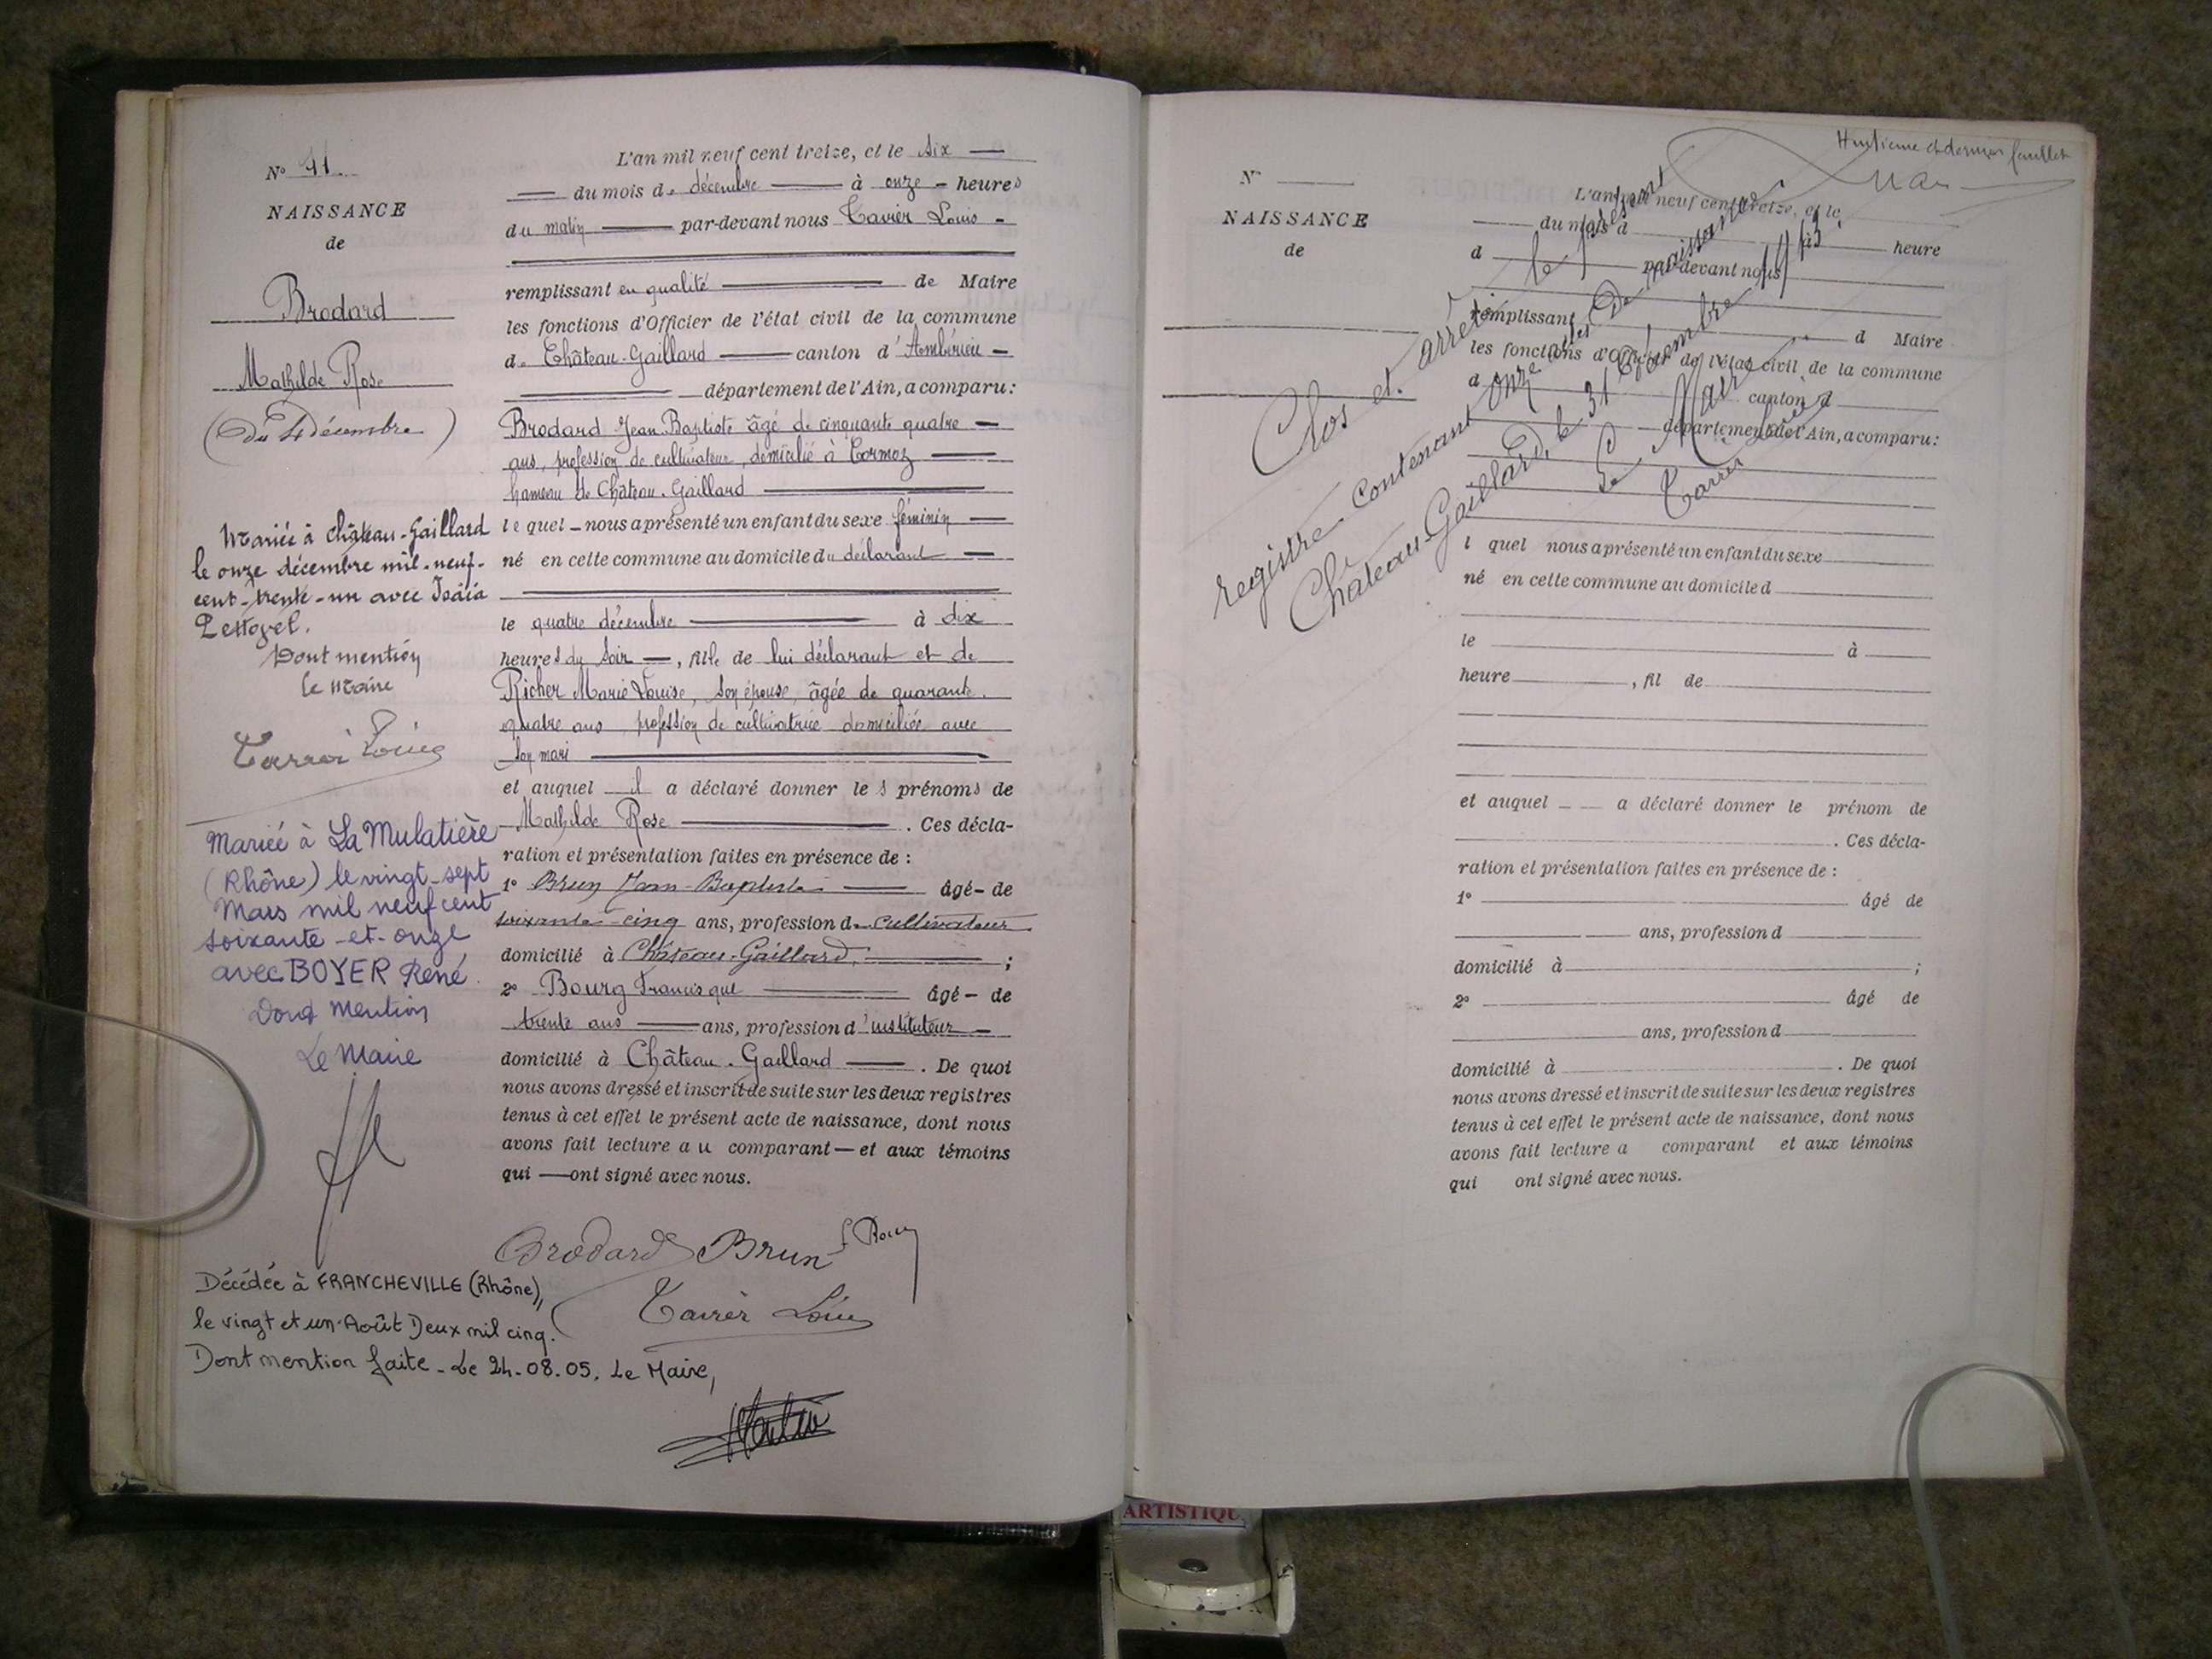 N° 11
NAISSANCE
de
Brodard
Mathilde Rose
(Du 4 décembre)
Mariée à Château-Gaillard
le onze décembre mil-neuf-
cent-trente-un avec Isaïa
Dont mention
le Maire
Mariée à La Mulatière
(Rhône) le vingt-sept
Mars mil neuf cent
soixante-et-onze
avec BOYER René.
Dont Mention
Le Maire
Décédée à FRANCHEVILLE (Rhône),
le vingt et un Août Deux mil cinq.
Dont mention faite - Le 24.08.05. Le Maire,
L'an mil neuf cent treize, et le six
du mois de décembre à onze heures
du matin par-devant nous Louis
remplissant en qualité de Maire
les fonctions d'Officier de l'état civil de la commune
de Château-Gaillard canton d'Ambérieu
département de l'Ain, a comparu:
Brodard Jean Baptiste âgé de cinquante quatre
ans, profession de cultivateur, domicilié à Cormoz
hameau de Château-Gaillard
lequel nous a présenté un enfant du sexe féminin
né en cette commune au domicile du déclarant
le quatre décembre à dix
heures du soir, fille de lui déclarant et de
Richer Marie Louise, son épouse, âgée de quarante
quatre ans profession de cultivatrice domiciliée avec
son mari
et auquel il a déclaré donner les prénoms de
Mathilde Rose. Ces décla-
ration et présentation faites en présence de :
1° Brun Jean-Baptiste âgé de
soixante-cinq ans, profession de cultivateur
domicilié à Château-Gaillard ;
2° Bourg Francisque âgé de
trente ans ans, profession d'instituteur
domicilié à Château-Gaillard. De quoi
nous avons dressé et inscrit de suite sur les deux registres
tenus à cet effet le présent acte de naissance, dont nous
avons fait lecture au comparant et aux témoins
qui ont signé avec nous.
Brodard Brun
Huitième et dernier feuillet
N°
NAISSANCE
de
L'an mil neuf cent treize, et le
du mois d à heure
d par-devant nous
remplissant d Maire
les fonctions d'Officier de l'état civil de la commune
d canton d
département de l'Ain, a comparu:
Clos et arrêté le présent
registre contenant onze actes de naissances
Château-Gaillard, le 31 Décembre 1913
Le Maire
l quel nous a présenté un enfant du sexe
né en cette commune au domicile d
le à
heure , fil de
et auquel a déclaré donner le prénom de
. Ces décla-
ration et présentation faites en présence de :
1° âgé de
ans, profession d
domicilié à ;
2° âgé de
ans, profession d
domicilié à . De quoi
nous avons dressé et inscrit de suite sur les deux registres
tenus à cet effet le présent acte de naissance, dont nous
avons fait lecture a comparant et aux témoins
qui ont signé avec nous.
ARTISTIQU